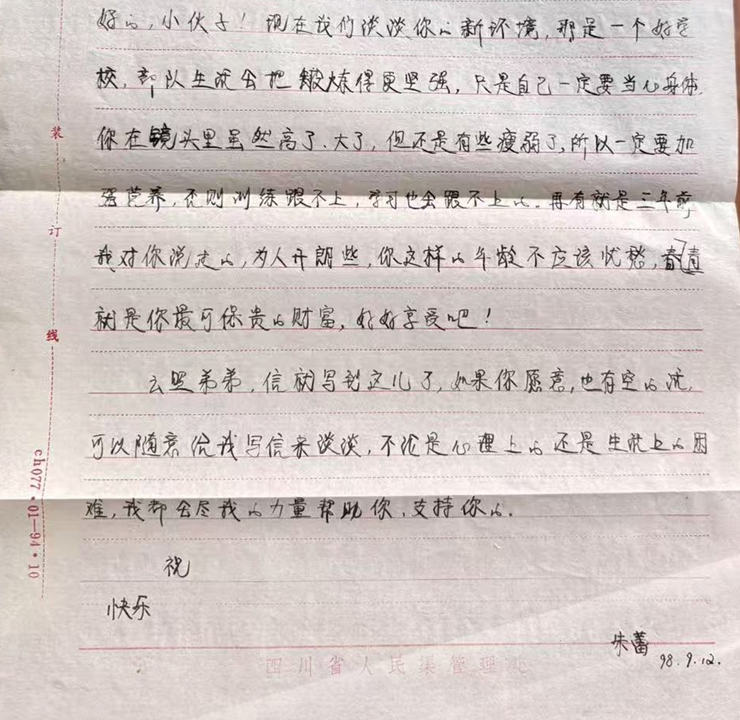 好的,小伙子!现在我们谈谈你的新环境,那是一个好学
校,部队生活会把 锻炼得更坚强,只是自己一定要当心身体,
你在镜头里虽然高了、大了,但还是有些瘦弱了,所以一定要加
强营养,否则训练跟不上,学习也会跟不上的。再有就是三年前
我对你说过的,为人开朗些,你这样的年龄不应该忧愁,青春
就是你最可保贵的财富,好好享受吧!
云照弟弟,信就写到这儿了,如果你愿意,也有空的话,
可以随意给我写信来谈谈,不论是心理上的还是生活上的困
难,我都会尽我的力量帮助你、支持你的。
祝
快乐
朱蕾
98.9.12.
装
订
线
ch077·01—94·10
四川省人民渠管理处